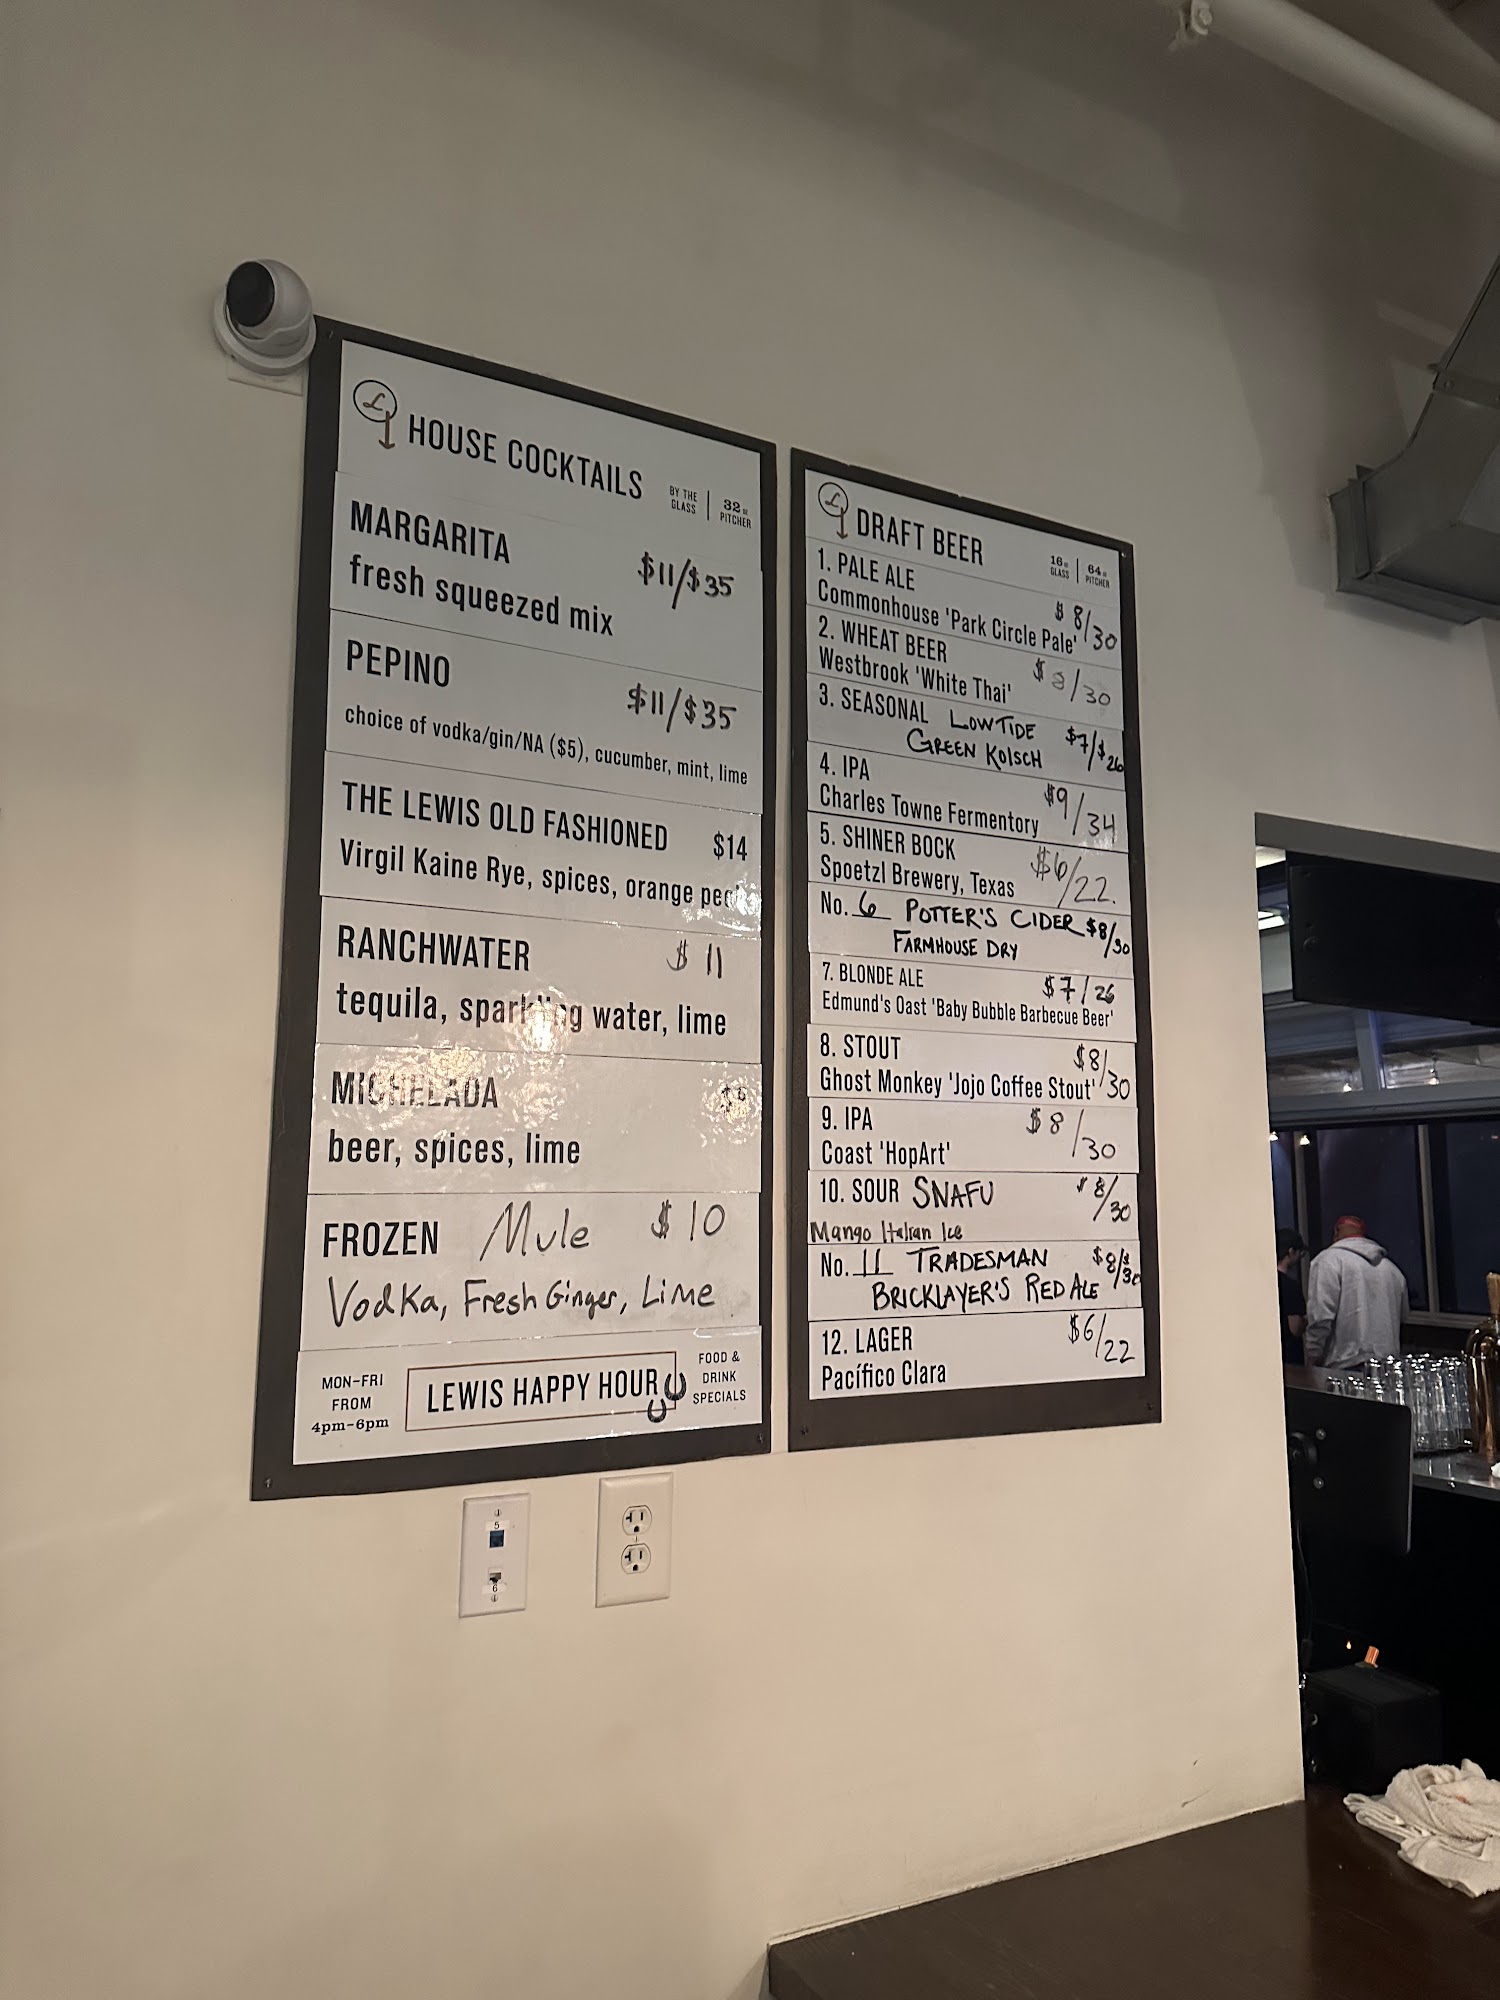 L
HOUSE COCKTAILS
BY THE GLASS | 32oz PITCHER
MARGARITA
$11/$35
fresh squeezed mix
PEPINO
$11/$35
choice of vodka/gin/NA ($5), cucumber, mint, lime
THE LEWIS OLD FASHIONED $14
Virgil Kaine Rye, spices, orange
RANCHWATER $11
tequila, sparkling water, lime
MICHELADA
beer, spices, lime
FROZEN Mule $10
Vodka, Fresh Ginger, Lime
MON-FRI
FROM
4pm-6pm
LEWIS HAPPY HOUR
FOOD &
DRINK
SPECIALS
L
DRAFT BEER
16oz GLASS | 64oz PITCHER
1. PALE ALE
Commonhouse 'Park Circle Pale' $8/30
2. WHEAT BEER
Westbrook 'White Thai' /30
3. SEASONAL LOWTIDE $7/$26
GREEN KOLSCH
4. IPA
Charles Towne Fermentory $9/34
5. SHINER BOCK
Spoetzl Brewery, Texas $6/22.
No. 6 POTTER'S CIDER $8/30
FARMHOUSE DRY
7. BLONDE ALE $7/26
Edmund's Oast 'Baby Bubble Barbecue Beer'
8. STOUT $8/30
Ghost Monkey 'Jojo Coffee Stout'
9. IPA $8/30
Coast 'HopArt'
10. SOUR SNAFU $8/30
Mango Italian Ice
No. 11 TRADESMAN $8/$30
BRICKLAYER'S RED ALE
12. LAGER $6/22
Pacífico Clara
5
6